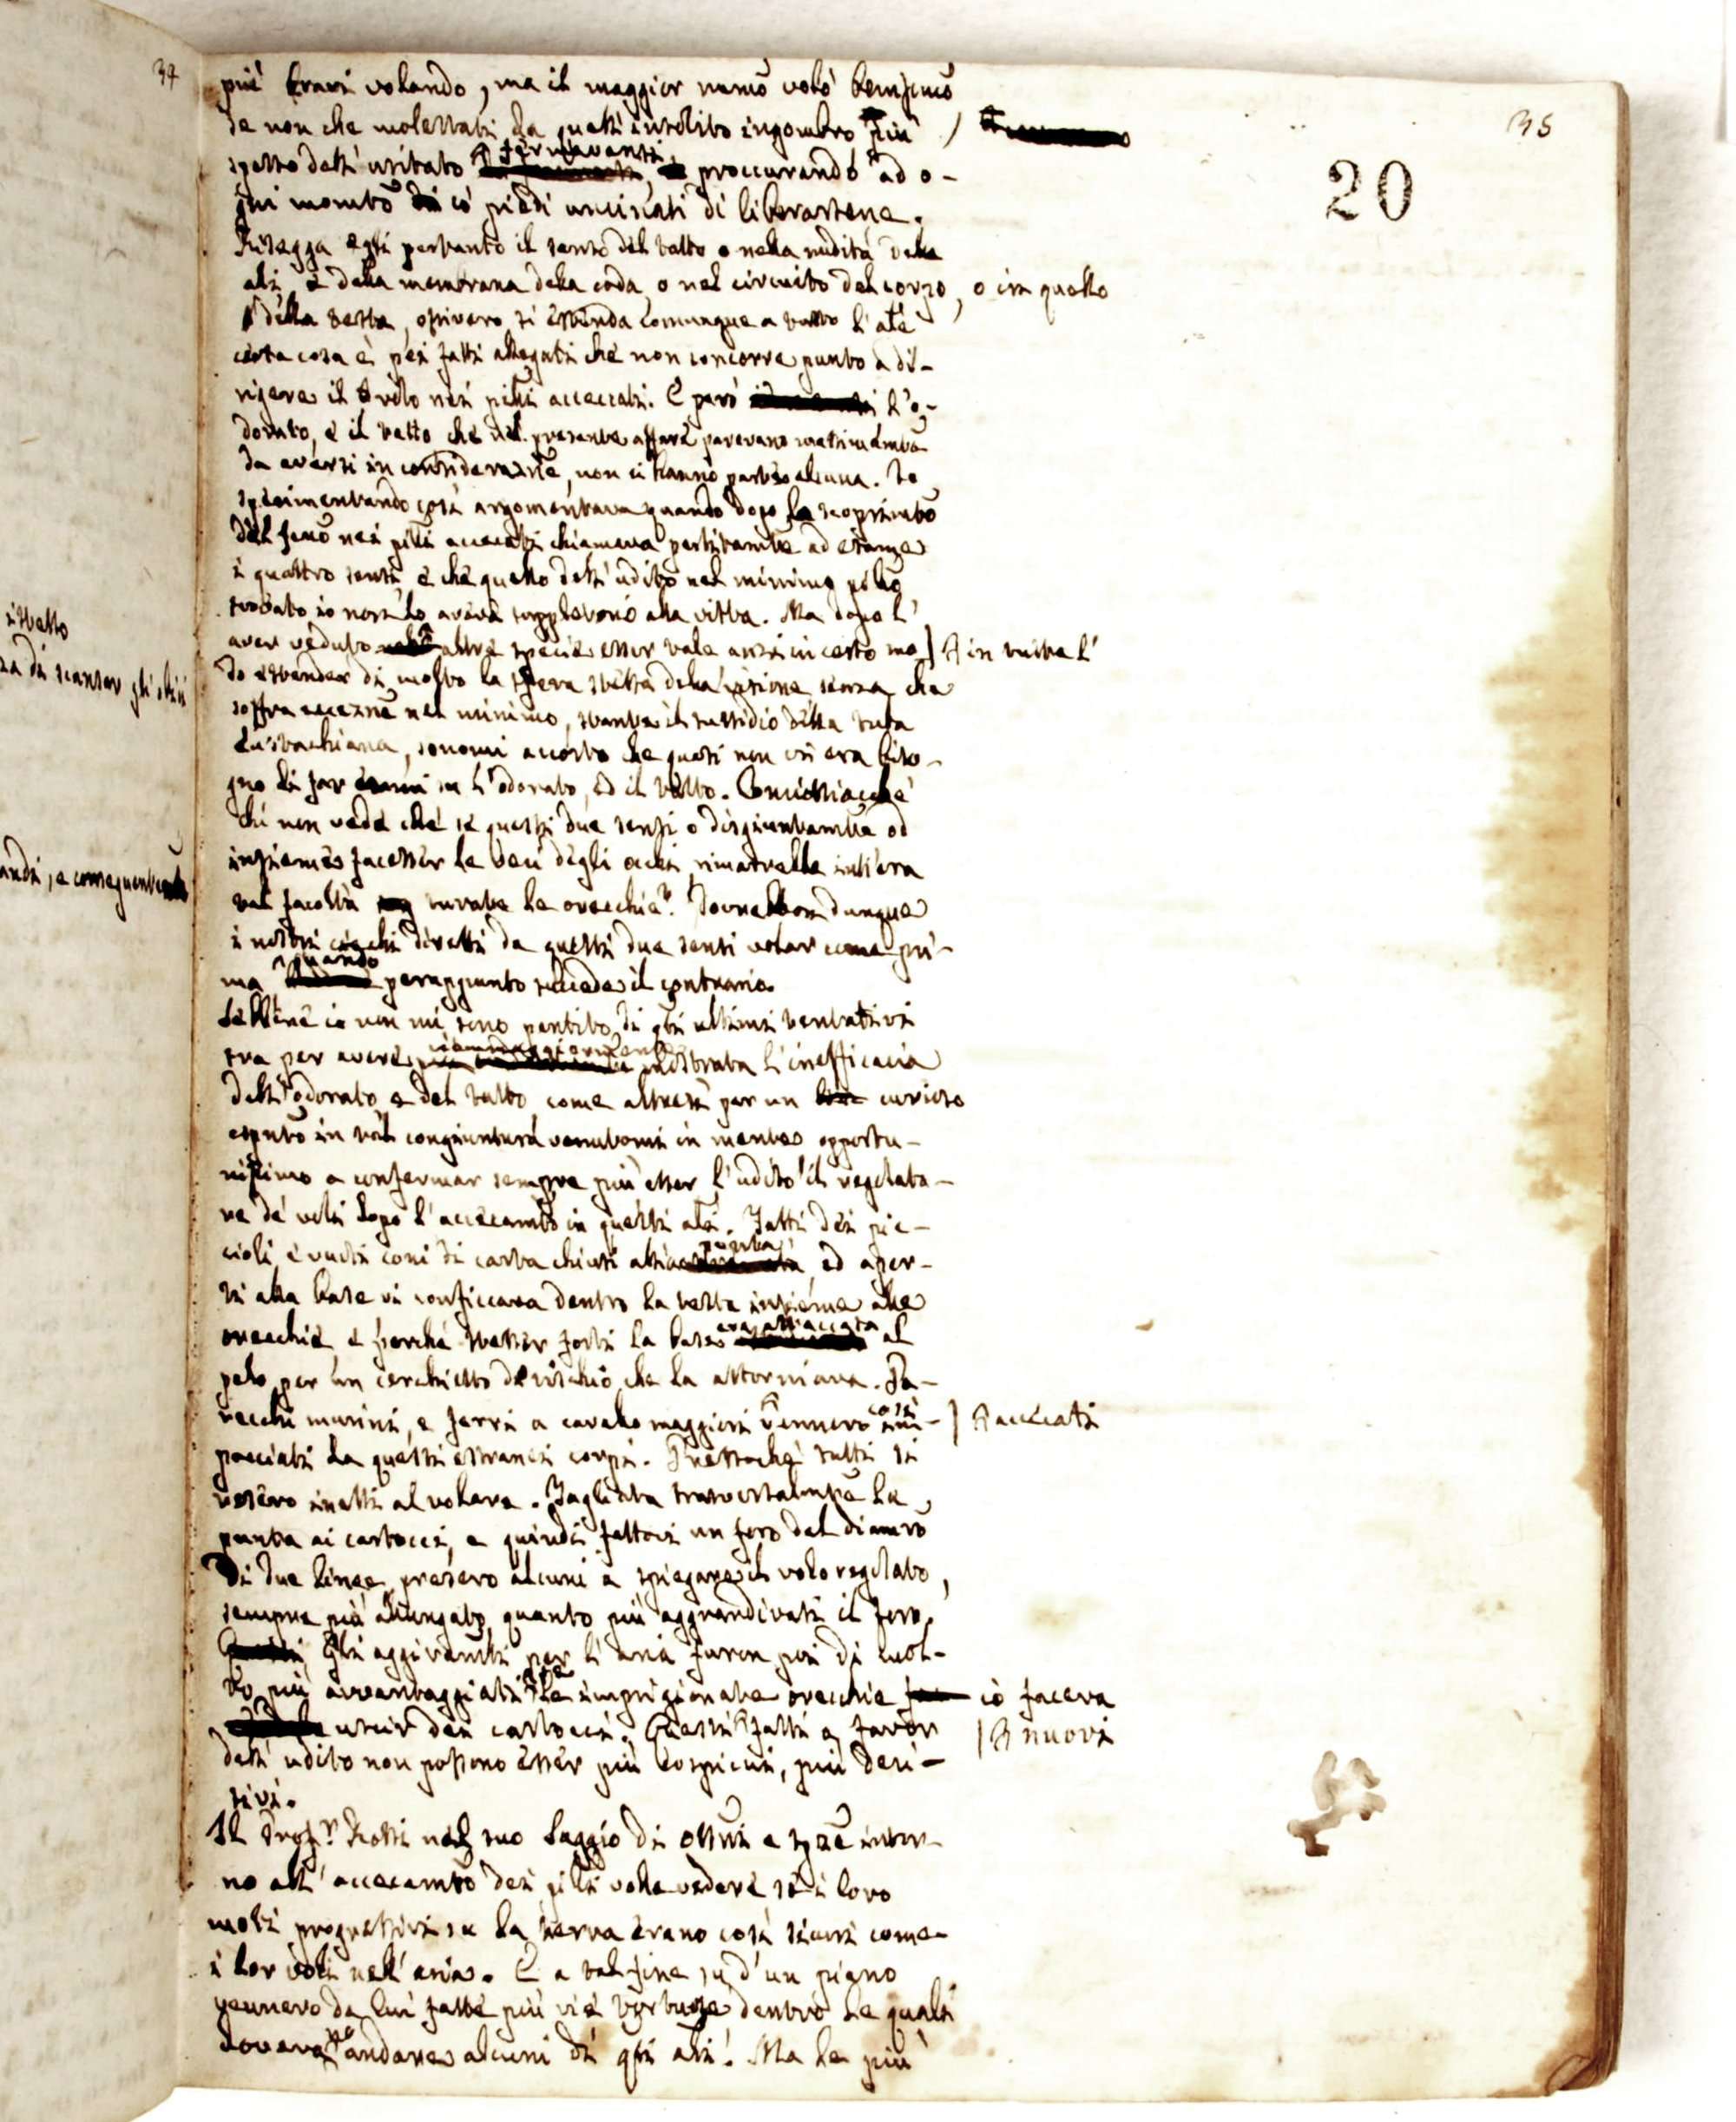 34
35
20
più bravi volando, ma il maggior numo volò benissimo
se non che molestati da quell'insolito ingombro più
spesso dell'usitato fermavansi, proccurando ad o-
gni momto co' piedi uncinati di liberarsene.
Risegga egli pertanto il senso del tatto o nella nudità delle
ali, e della membrana della coda, o nel circuito del corpo, o in quello
della testa, ossivero si estenda comunque a tutto l'ale
certa cosa è pei fatti allegati che non concorre punto a di-
rigere il volo nei pilli acceccati. E però l'o-
dorato, e il tatto che nel presente affare parevano massimamte
da aversi in considerazne, non ci hanno parte alcuna. Io
sperimentando così argomentava quando dopo lo scoprimto
del feno nei pilli accecati chiamava partitamte ad esame
i quattro sensi, e che quello dell'udito nel minimo pillo
trovato io non lo aveva suppletorio alla vista. Ma dopo l'
aver veduto altre specie esser tale anzi in certo mo in tutte l'
do estender di molto la sfera stessa della visione senza che
soffra eccezne nel minimo, stante il sussidio della tuba
Eustachiana, sonomi accorto che quasi non vi era biso-
gno di far esami su l'odorato, ed il tatto. Comciossiacchè
chi non vede che se questi due sensi o disgiuntamte od
insieme facesser le veci degli occhi, rimatrebbe intiera
tal facoltà turate le orecchie? Dovrebbon dunque
i nostri ciechi diretti da questi due sensi volar come pri-
ma quando perappunto succede il contrario.
Sebbene io non mi sono pentito di qsti ultimi tentativi
tra per avere viemmaggiormente mostrata l'inefficacia
dell'odorato, e del tatto, come altresì per un curioso
espnto in tal congiuntura venutomi in mente opportu-
nissimo a confermar sempre più esser l'udito il regolato-
re de' voli dopo l'accecamto in questi ali. Fatti dei pic-
cioli, e vuoti coni di carta chiusi alla punta, ed aper-
ti alla base vi conficcava dentro la testa insieme alle
orecchie e perchè stesser forti la base era attaccata al
pelo per un cerchietto di vischio che la attorniava. Pa-
recchi murini, e ferri a cavallo maggiori vennero così im- accecati
pacciati da questi estranei corpi. Pressochè tutti si
resero inetti al volare. Tagliata trasversalmte la
punta ai cartocci, e quindi fattovi un foro del diamro
di due linee, presero alcuni a spiegare il volo regolato,
sempre più allungato, quanto più aggrandivasi il foro.
Gli aggiramti per l'aria furon poi di mol-
to più avvantaggiati se le imprigionate orecchie io faceva
uscir dei cartocci. Questi fatti a favor nuovi
dell'udito non possono esser più cospicui, più deci-
sivi.
Il Profr Rossi nel suo Saggio di ossni e spze intor-
no all'accecamto dei pilli volle vedere se i loro
moti progressivi su la terra erano così sicuri come
i lor voli nell'aria. E a tal fine su d'un piano
vennero da lui fatte più vie tortuose dentro le quali
doveva andare alcuni di qsti ali. Ma le più